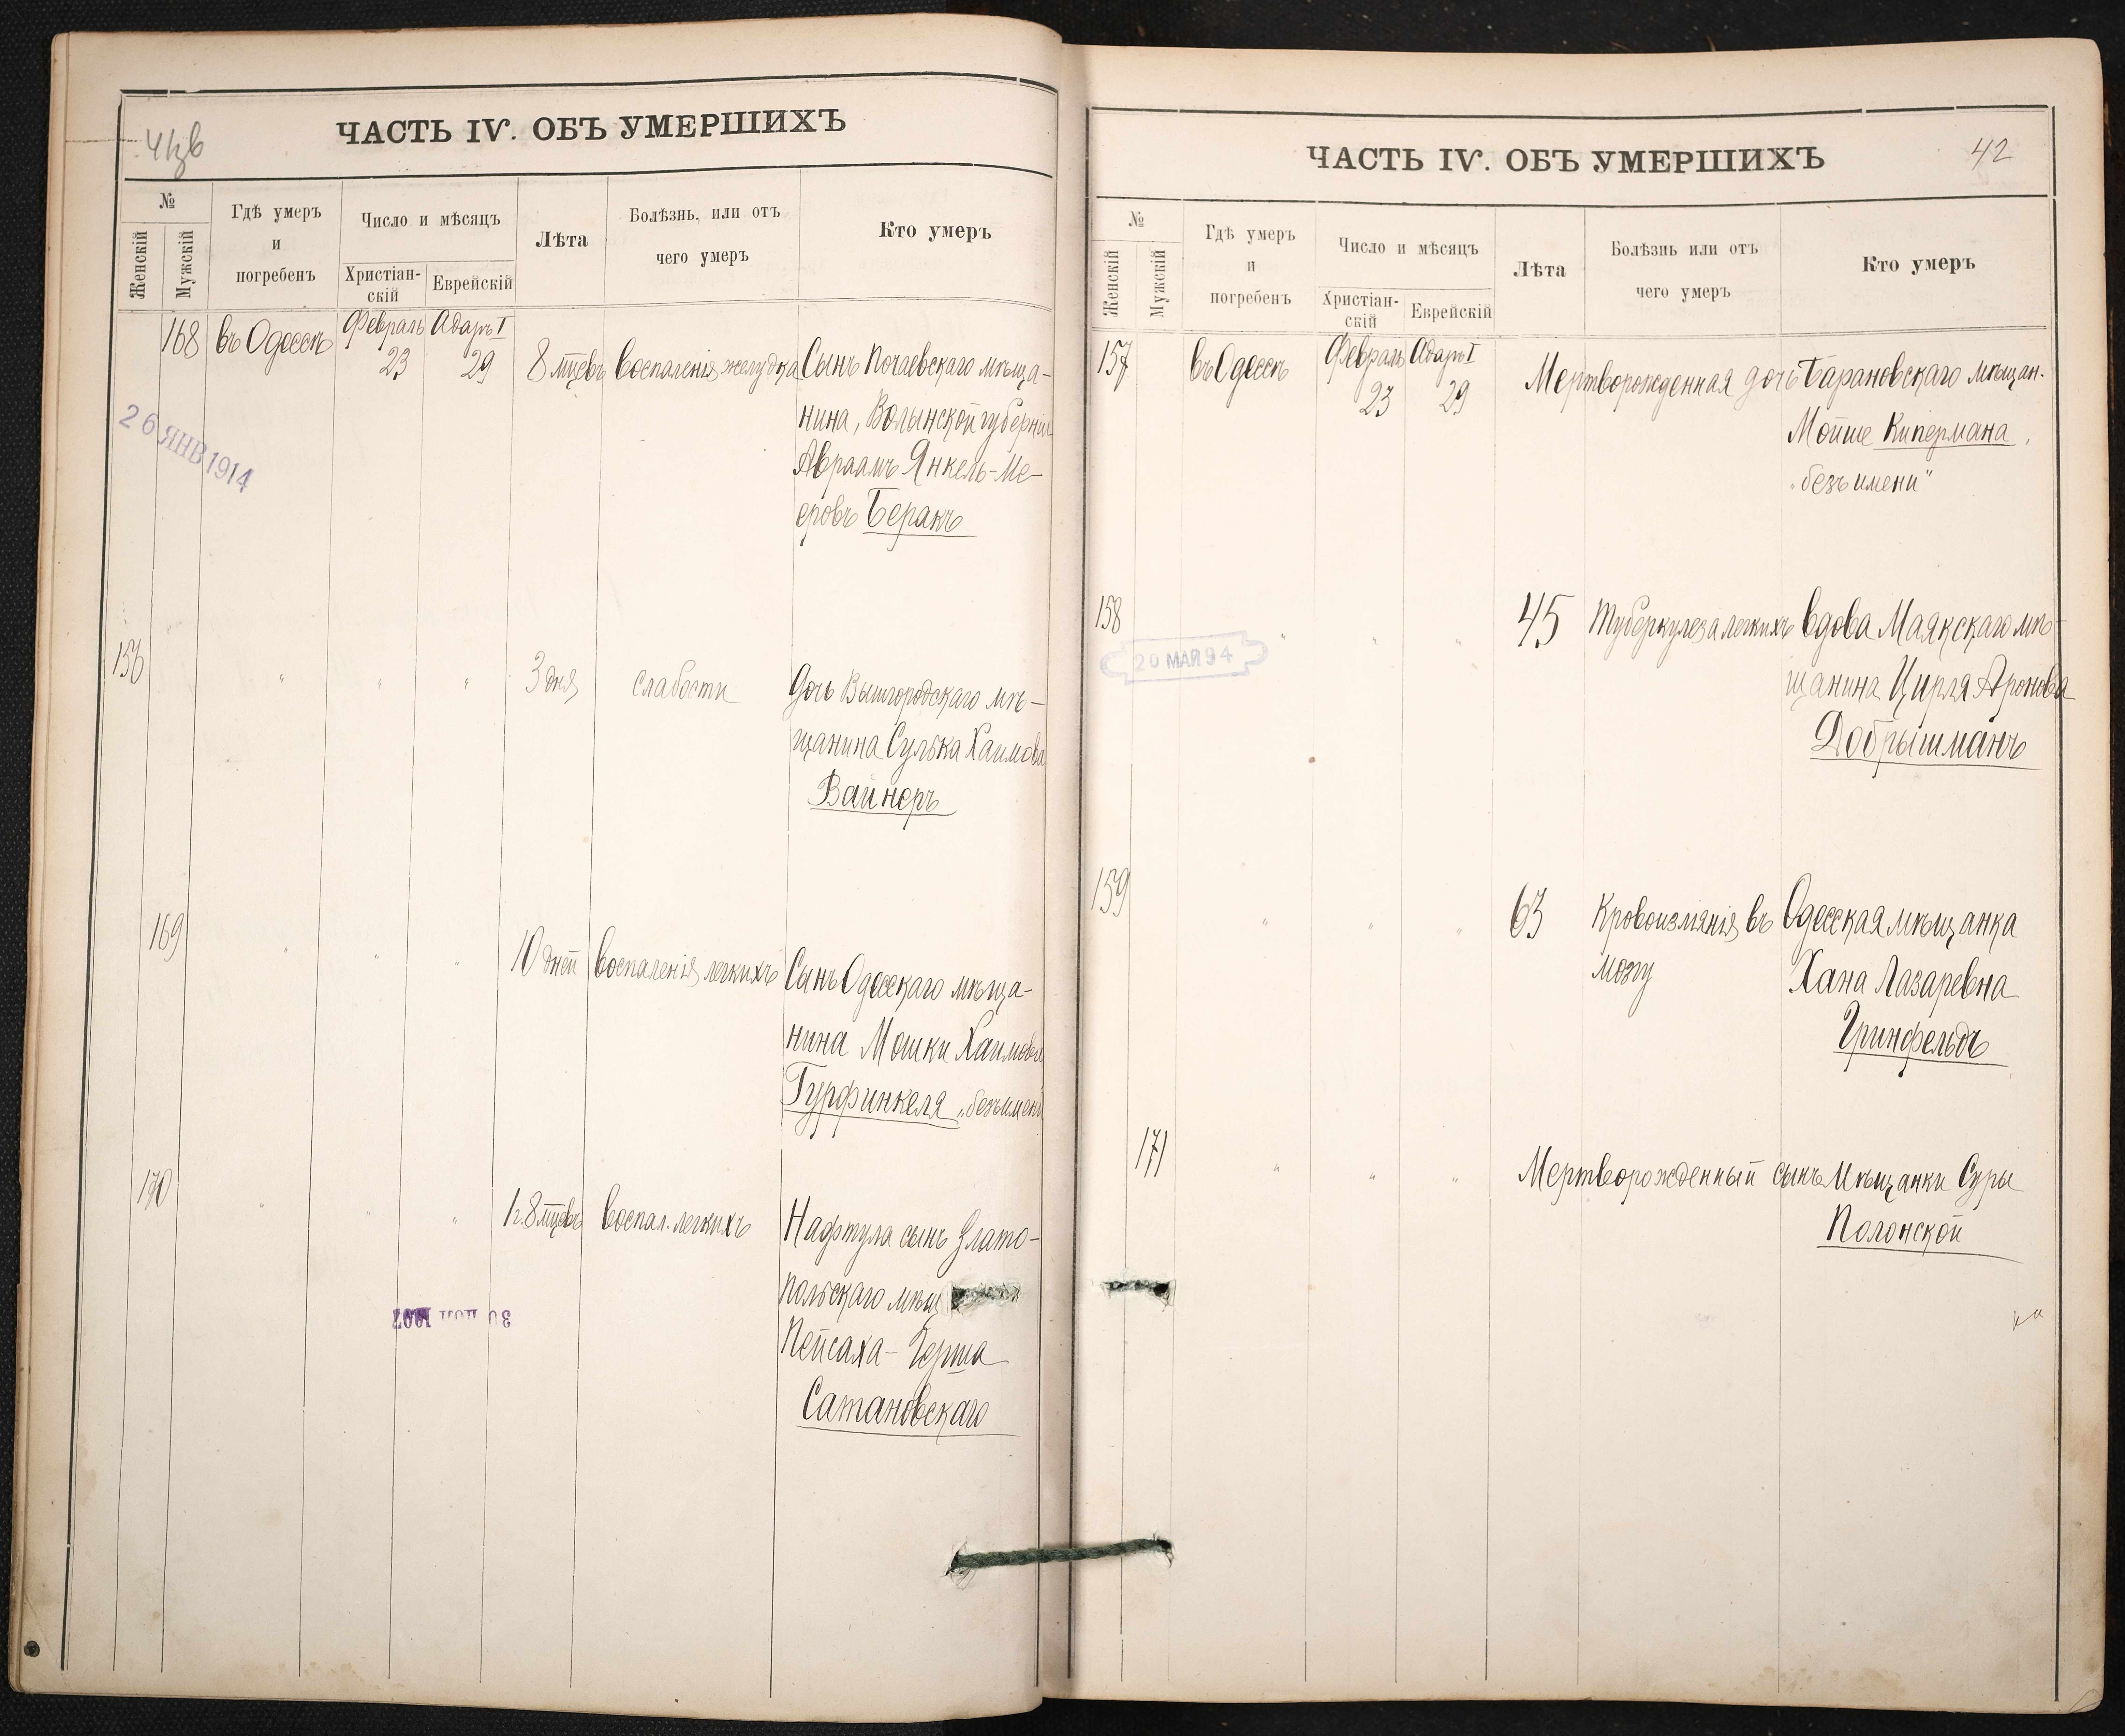 ЧАСТЬ IV. ОБЪ УМЕРШИХЪ
№
Женскій
Мужскій
Гдѣ умеръ
и
погребенъ
Число и мѣсяцъ
Христіан-
скій
Еврейскій
Лѣта
Болѣзнь, или отъ
чего умеръ
Кто умеръ
168 въ Одессѣ Февраль Адаръ I
23 29 8 мцевъ воспаленія желудка Сынъ Почаевскаго мѣща-
нина, Волынской губерніи
Авраамъ Янкель-Ме-
еровъ Беракъ
26 ЯНВ 1914
156 " " " 3 дня слабости Дочь Вышгородскаго мѣ-
щанина Сулька Хаимова
Вайнеръ
169 " " " 10 дней воспаленія легкихъ Сынъ Одесскаго мѣща-
нина Мошки Хаимова
Гурфинкеля „безъ имени
170 " " " 1 г. 8 мцевъ воспал. легкихъ Нафтула сынъ Злато-
польскаго мѣщ
Пейсаха-Герша
Сатановскаго
ЧАСТЬ IV. ОБЪ УМЕРШИХЪ 42
№
Женскій
Мужскій
Гдѣ умеръ
и
погребенъ
Число и мѣсяцъ
Христіан-
скій
Еврейскій
Лѣта
Болѣзнь или отъ
чего умеръ
Кто умеръ
157 въ Одессѣ Февраль Адаръ I
23 29 Мертворожденная дочь Барановскаго мѣщан.
Мойше Кипермана,
„безъ имени"
158 " " " 45 Туберкулеза легкихъ вдова Маякскаго мѣ-
щанина Цирля Аронова
Добрышманъ
20 МАЯ 94
159 " " " 63 Кровоизліянія въ Одесская мѣщанка
мозгу Хана Лазаревна
Гринфельдъ
171 " " " Мертворожденный сынъ Мѣщанки Суры
Полонской